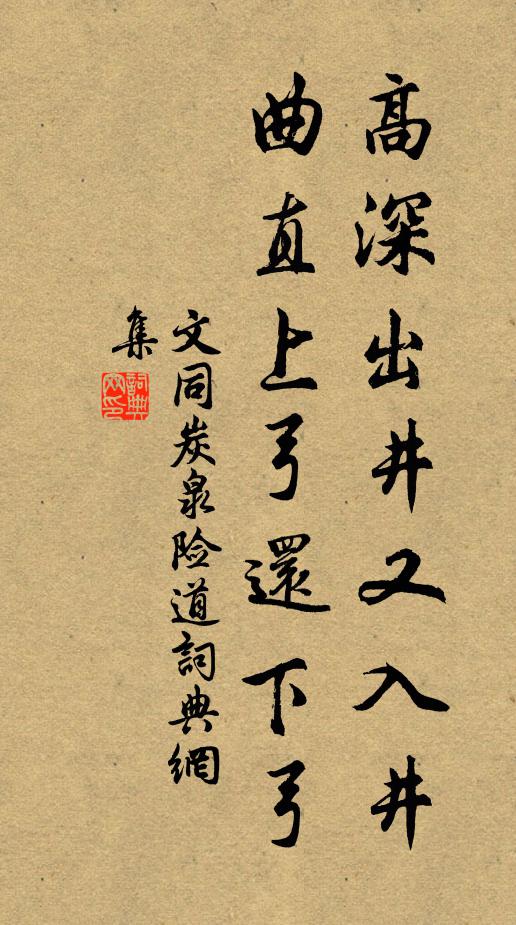 高深出井又入井
曲直上弓還下弓
文同炭泉险道詞典網
集
詞典网印